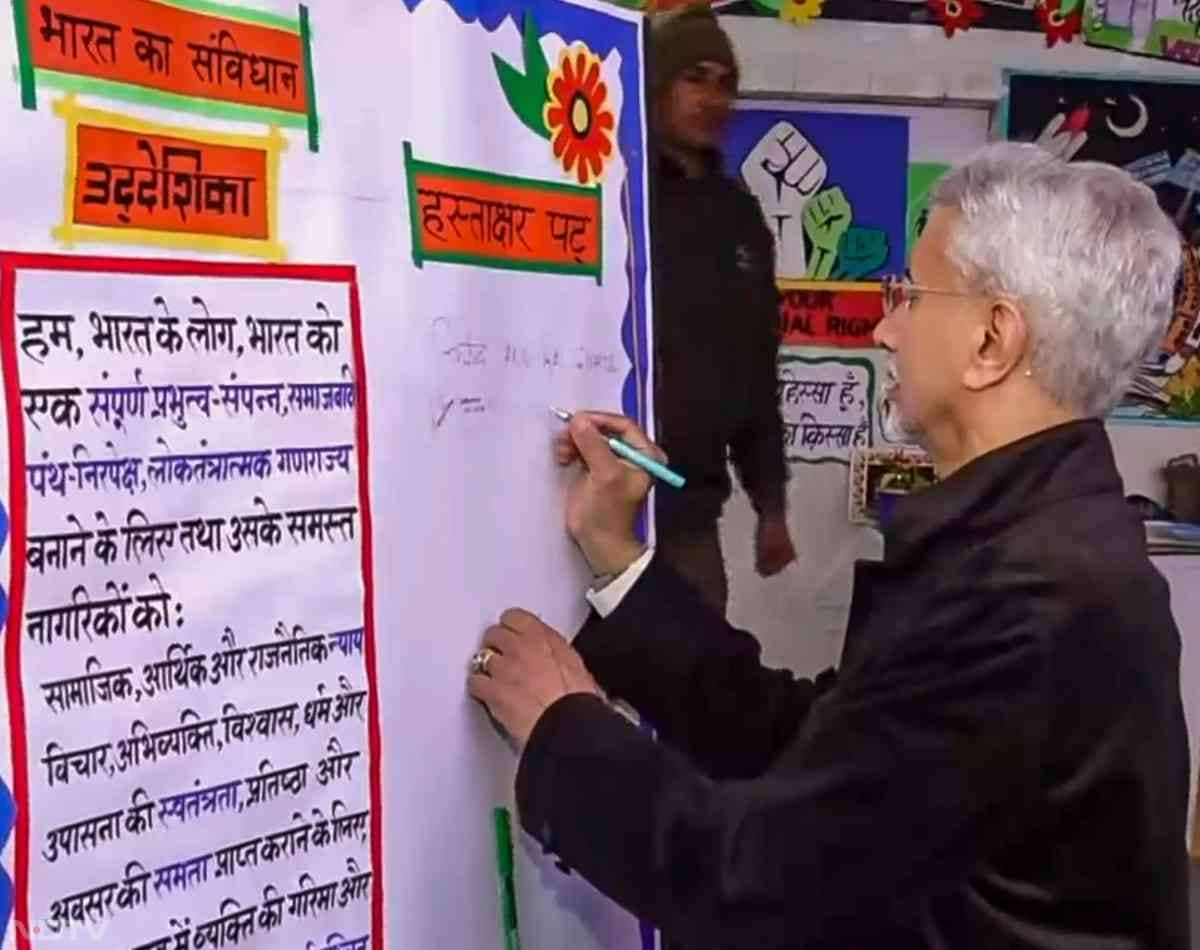 भारत का संविधान
उद्देशिका
हस्ताक्षर पट्
हम, भारत के लोग, भारत को
एक संपूर्ण प्रभुत्व-संपन्न, समाजवादी
पंथ-निरपेक्ष, लोकतंत्रात्मक गणराज्य
बनाने के लिए तथा उसके समस्त
नागरिकों को:
सामाजिक, आर्थिक और राजनैतिक न्याय
विचार, अभिव्यक्ति, विश्वास, धर्म और
उपासना की स्वतंत्रता, प्रतिष्ठा और
अवसर की समता प्राप्त कराने के लिए,
में व्यक्ति की गरिमा और
YOUR
हिस्सा हूँ,
का क़िस्सा हूँ
NDTV